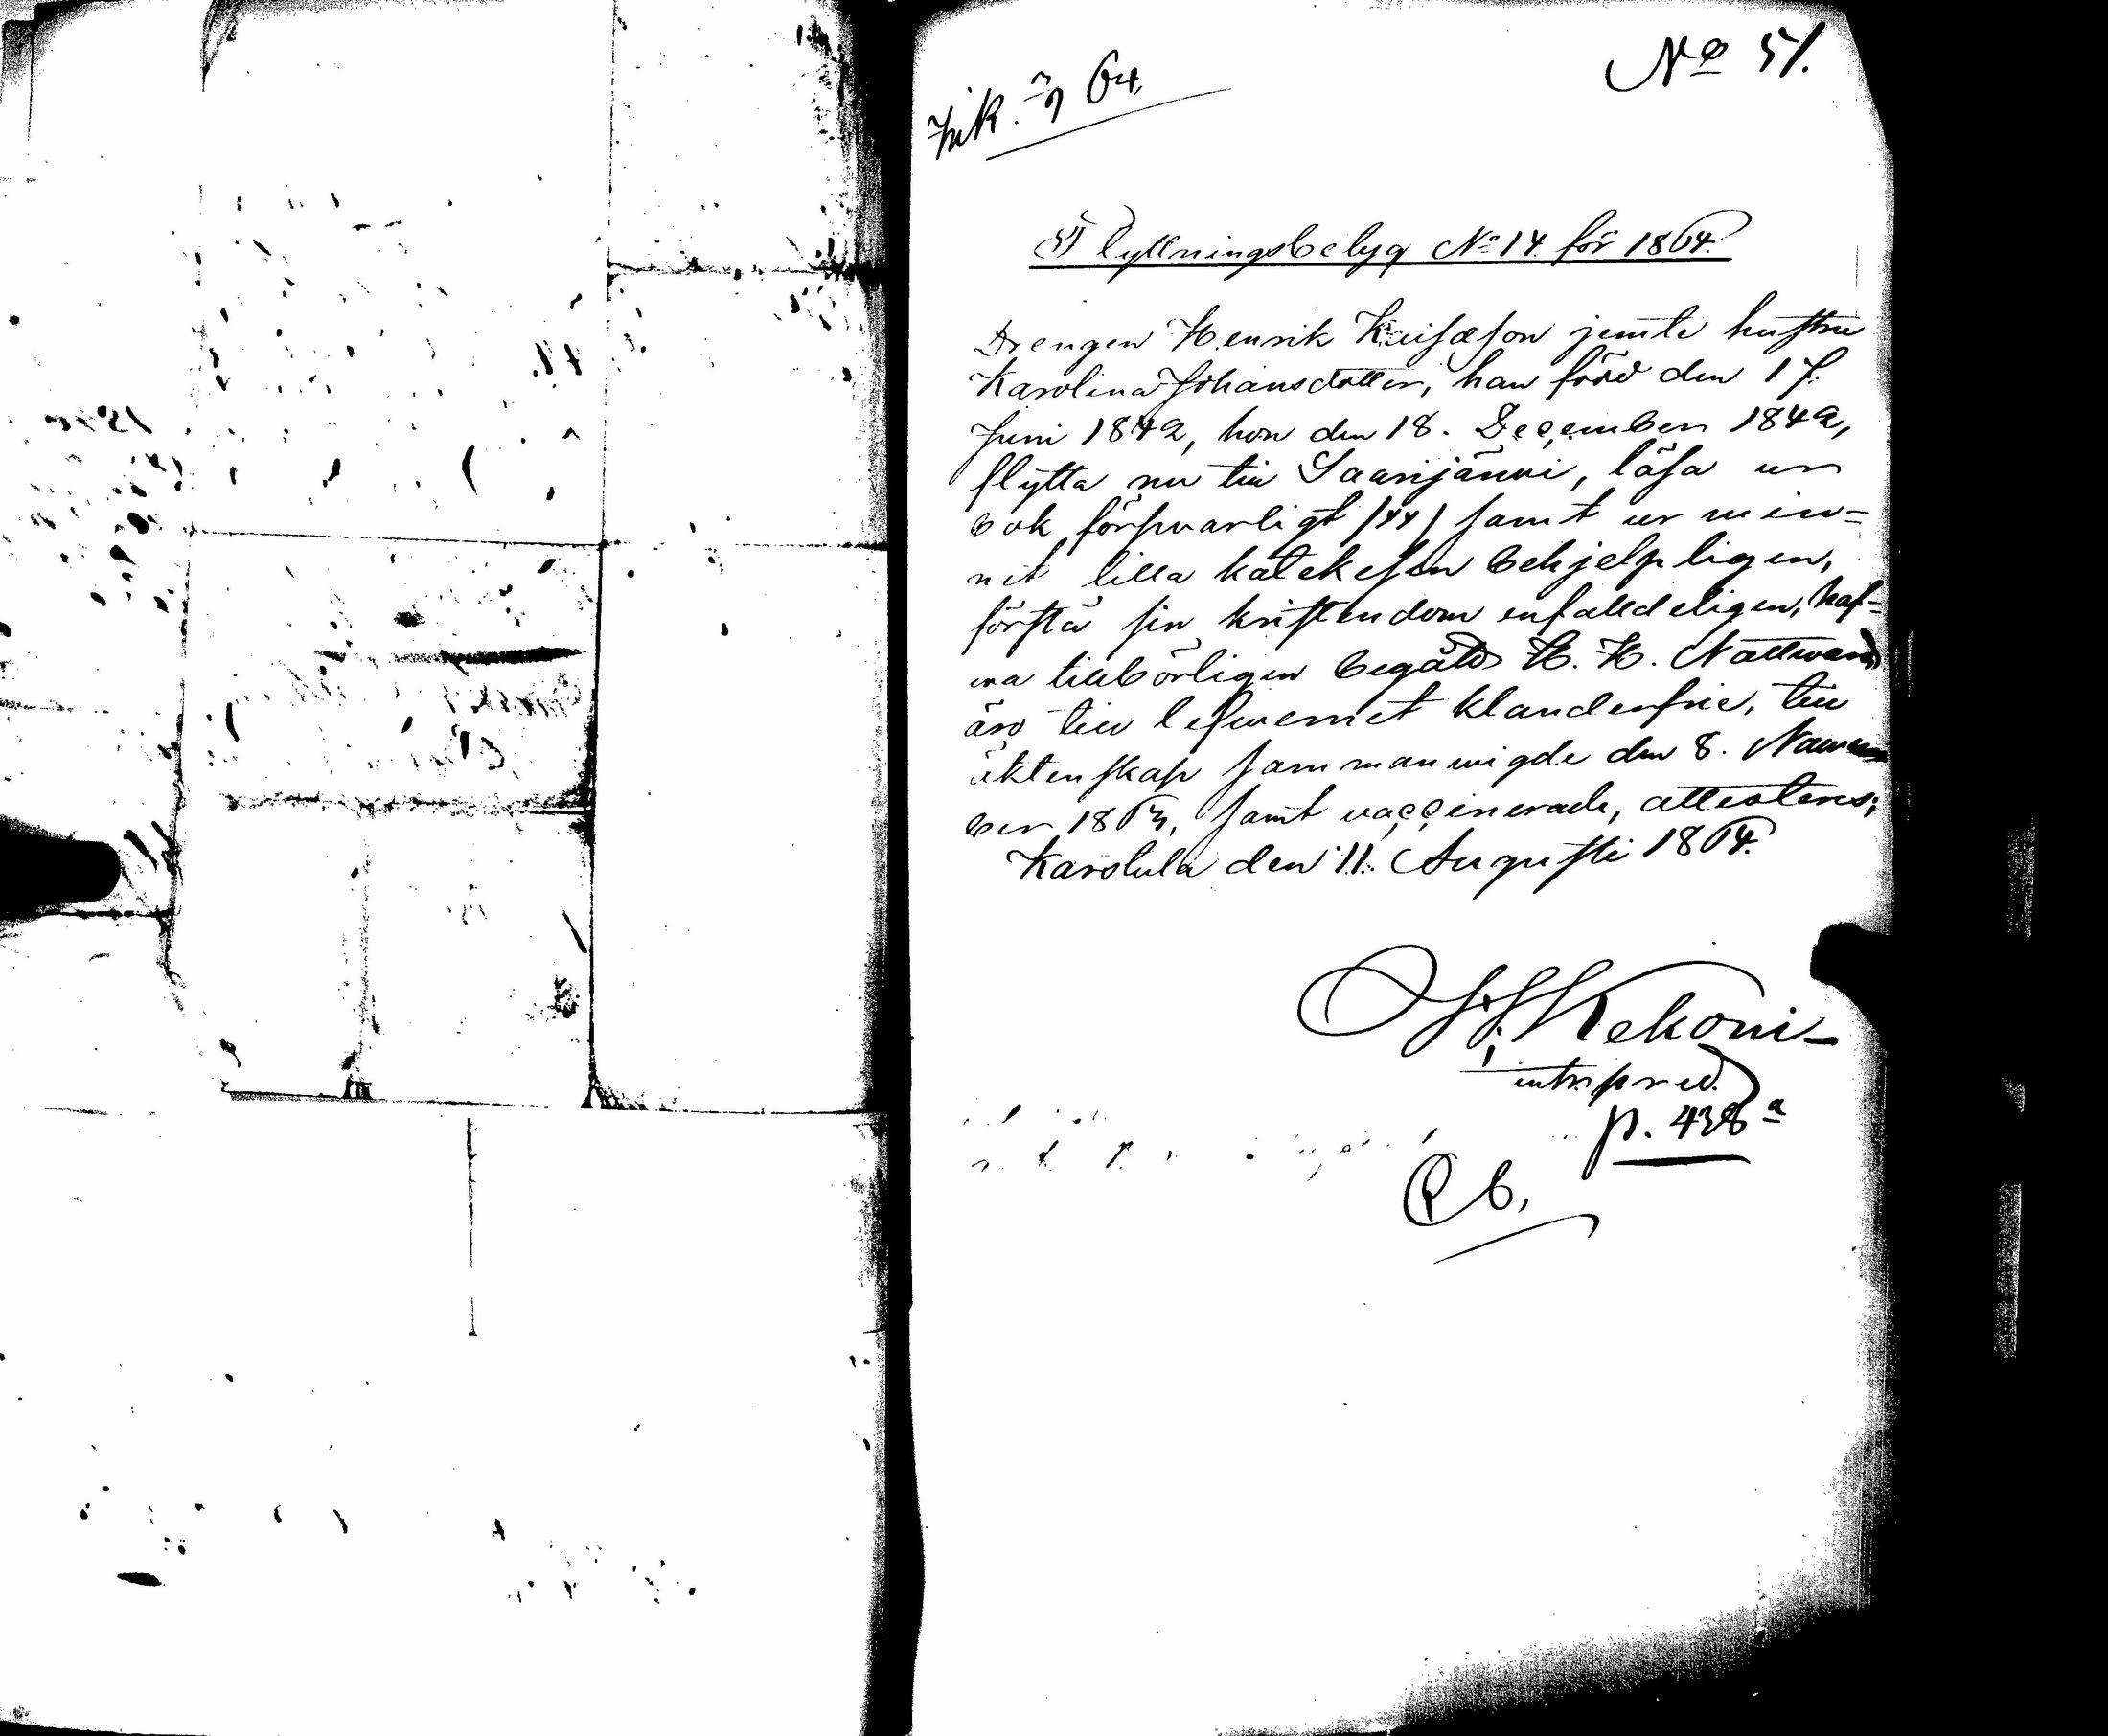 No 51.
Ink. 3/9 64.
Flyttningsbetyg No 14 för 1864.
Drengen Henrik Kaisason jemte hustru
Karolina Johansdotter, han född den 17.
Juni 1842, hon den 18. December 1842,
flytta nu till Saarijärvi, läsa ur
bok försvarligt /xx/ samt ur min-
net lilla katekesen behjelpligen,
förstå sin kristendom enfaldeligen, haf-
wa tillbörligen begått H. H. Nattward
äro till lefwernet klanderfrie, till
äktenskap sammanwigde den 8. Nowem
ber 1863, samt vaccinerade, attesteras;
Karstula den 11. Augusti 1864.
Kekoni
p. 438 a